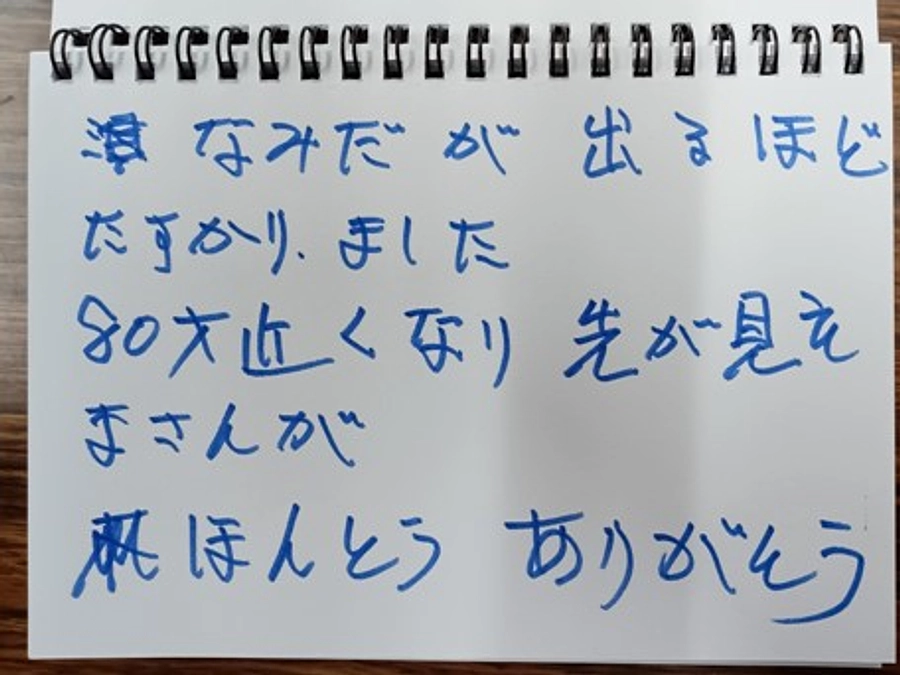 なみだが 出るほど
たすかり、ました
80才近くなり 先が見え
まさんが
ほんとう ありがそう